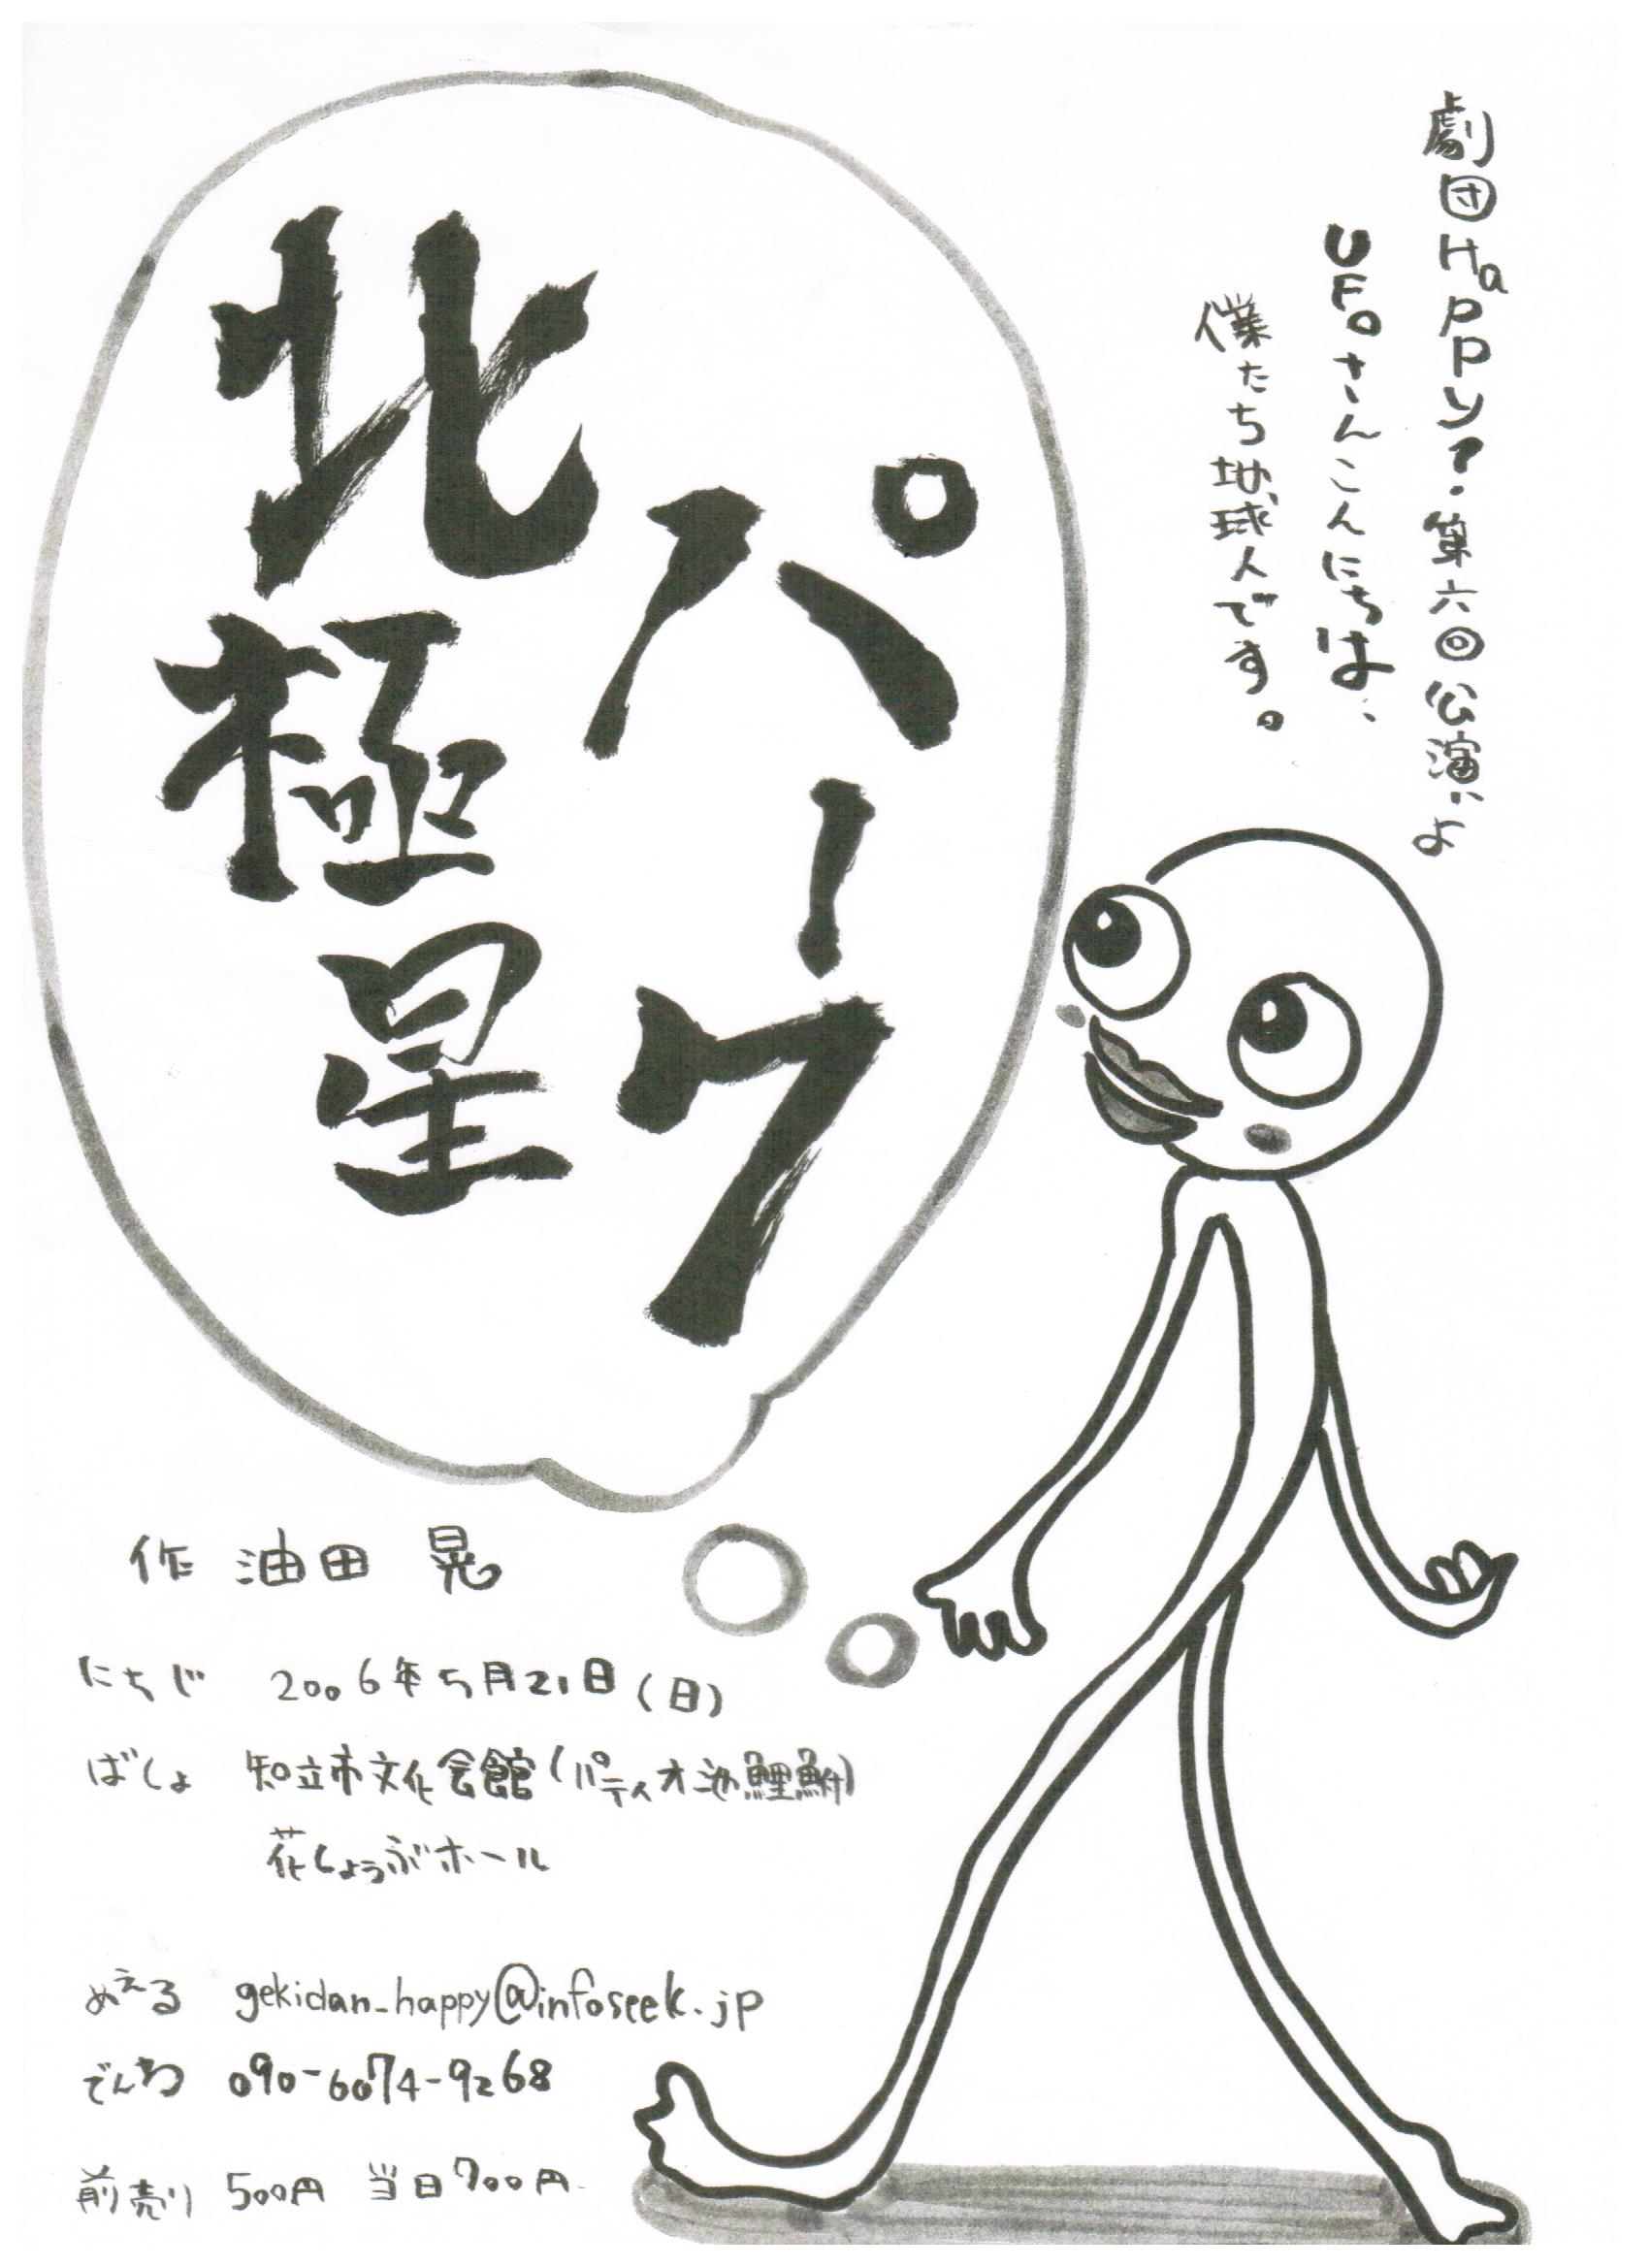 劇団Happy?.第六回公演"よ
UFOさんこんにちは、
僕たち地球人です。
パーク
北極星
作 油田 晃
にちじ 2006年5月21日(日)
ばしょ 知立市文化会館(パティオ池鯉鮒)
花しょうぶホール
めえる gekidan_happy@infoseek.jp
でんわ 090-6074-9268
前売り 500円 当日700円